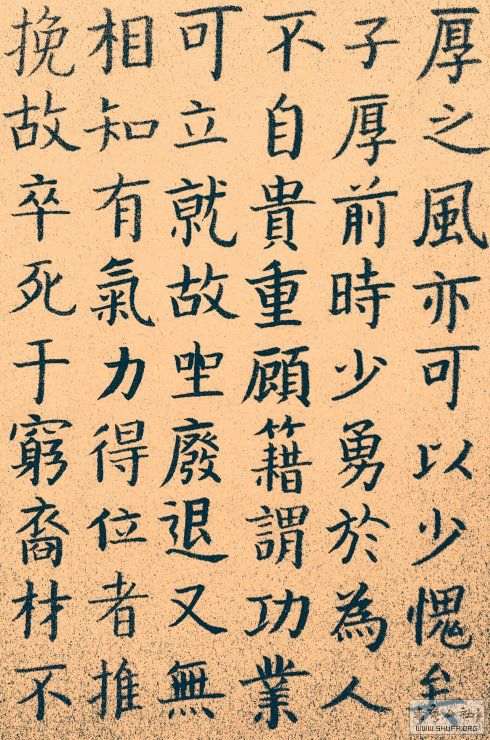 厚之風亦可以少愧矣
子厚前時少勇於為人
不自貴重顧籍謂功業
可立就故坐廢退又無
相知有氣力得位者推
挽故卒死于窮裔材不
WWW.SHUFA.ORG